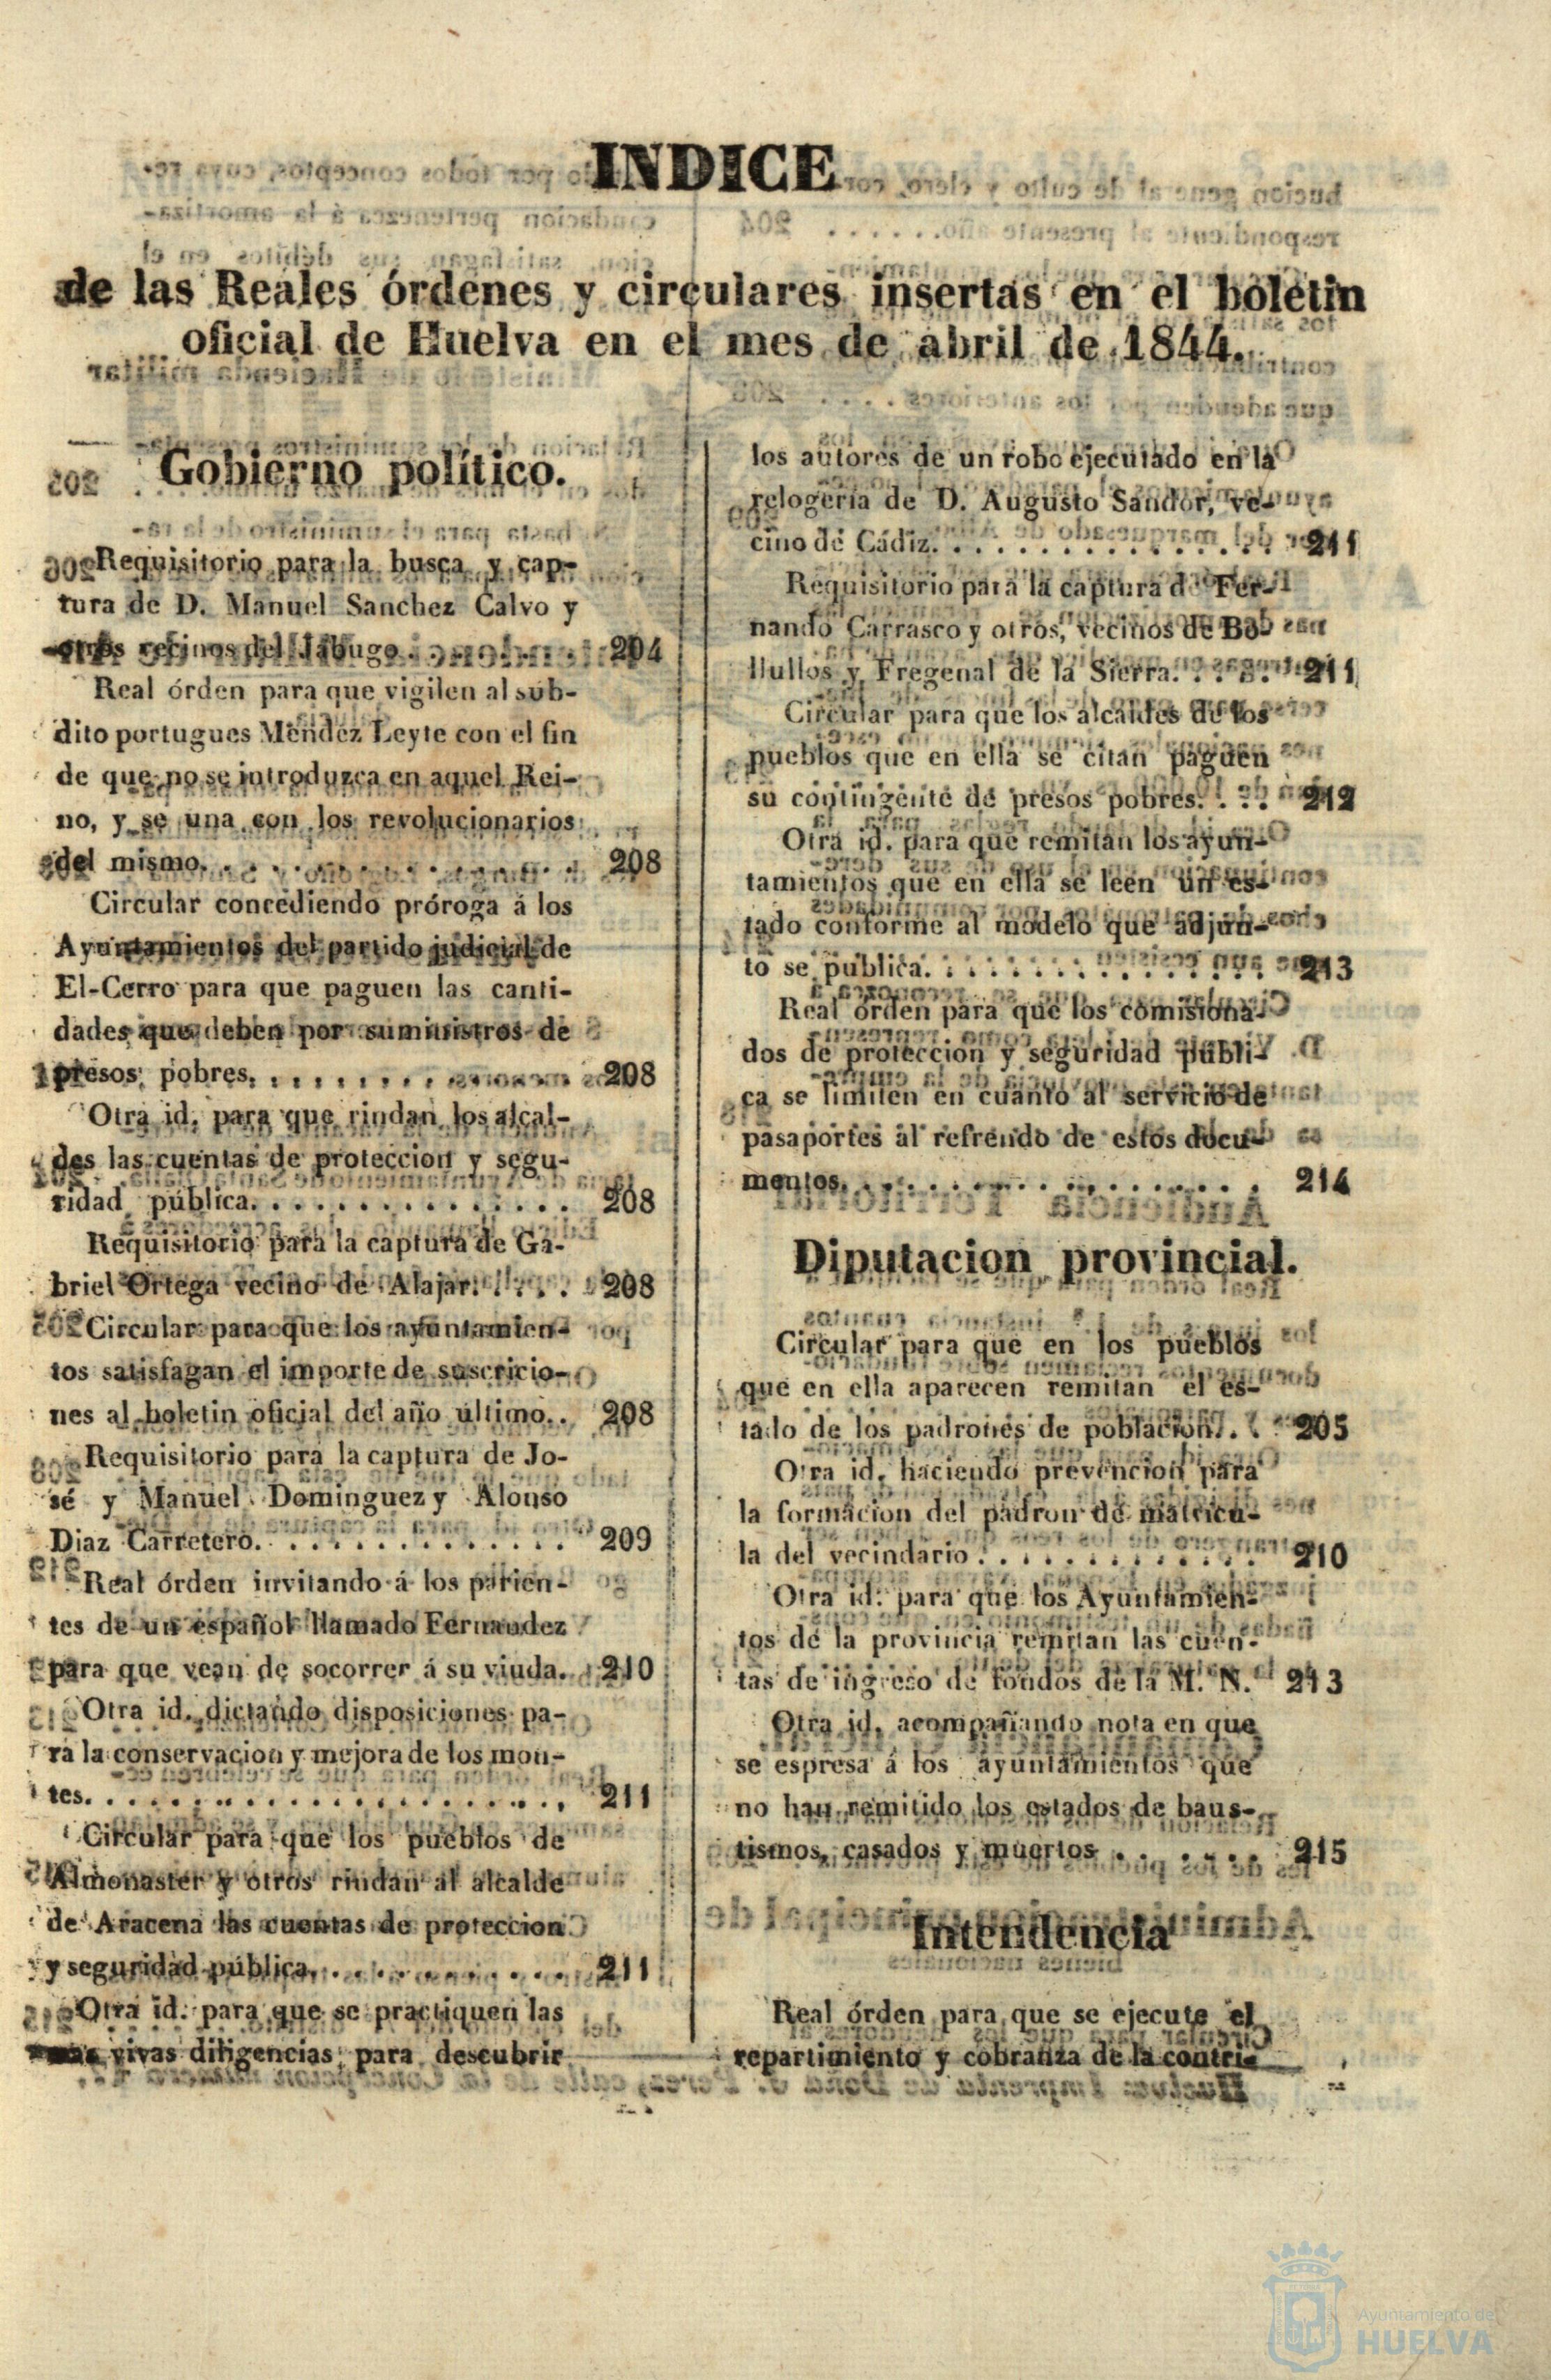 INDICE
de las Reales órdenes y circulares insertas en el boletin
oficial de Huelva en el mes de abril de 1844.
Gobierno político.
Requisitorio para la busca y cap-
tura de D. Manuel Sanchez Calvo y
otros vecinos del Jabugo. . . . . . . . 204
Real órden para que vigilen al súb-
dito portugues Mendez Leyte con el fin
de que no se introduzca en aquel Rei-
no, y se una con los revolucionarios
del mismo. . . . . . . . . . . . . . . . . 208
Circular concediendo próroga á los
Ayuntamientos del partido judicial de
El-Cerro para que paguen las canti-
dades que deben por suministros de
presos pobres. . . . . . . . . . . . . . . 208
Otra id. para que rindan los alcal-
des las cuentas de proteccion y segu-
ridad pública. . . . . . . . . . . . . . . 208
Requisitorio para la captura de Ga-
briel Ortega vecino de Alajar. . . . . 208
Circular para que los ayuntamien-
tos satisfagan el importe de suscricio-
nes al boletin oficial del año último. . 208
Requisitorio para la captura de Jo-
sé y Manuel Dominguez y Alonso
Diaz Carretero. . . . . . . . . . . . . . 209
Real órden invitando á los parien-
tes de un español llamado Fernandez
para que vean de socorrer á su viuda. . 210
Otra id. dictando disposiciones pa-
ra la conservacion y mejora de los mon-
tes. . . . . . . . . . . . . . . . . . . . . . 211
Circular para que los pueblos de
Almonaster y otros rindan al alcalde
de Aracena las cuentas de proteccion
y seguridad pública. . . . . . . . . . . . 211
Otra id. para que se practiquen las
mas vivas diligencias para descubrir
los autores de un robo ejecutado en la
relogería de D. Augusto Sandor, ve-
cino de Cádiz. . . . . . . . . . . . . . . . 211
Requisitorio para la captura de Fer-
nando Carrasco y otros, vecinos de Bo-
llullos y Fregenal de la Sierra. . . . . 211
Circular para que los alcaldes de los
pueblos que en ella se citan paguen
su contingente de presos pobres. . . . 212
Otra id. para que remitan los ayun-
tamientos que en ella se leen un es-
tado conforme al modelo que adjun-
to se publica. . . . . . . . . . . . . . . . 213
Real órden para que los comisiona-
dos de proteccion y seguridad públi-
ca se limiten en cuanto al servicio de
pasaportes al refrendo de estos docu-
mentos. . . . . . . . . . . . . . . . . . . 214
Diputacion provincial.
Circular para que en los pueblos
que en ella aparecen remitan el es-
tado de los padrones de poblacion. . . 205
Otra id. haciendo prevencion para
la formacion del padron de matricu-
la del vecindario . . . . . . . . . . . . . 210
Otra id. para que los Ayuntamien-
tos de la provincia remitan las cuen-
tas de ingreso de fondos de la M. N. 213
Otra id. acompañando nota en que
se espresa á los ayuntamientos que
no han remitido los estados de baus-
tismos, casados y muertos . . . . . . . 215
Intendencia
Real órden para que se ejecute el
repartimiento y cobranza de la contri-
Ayuntamiento de
HUELVA